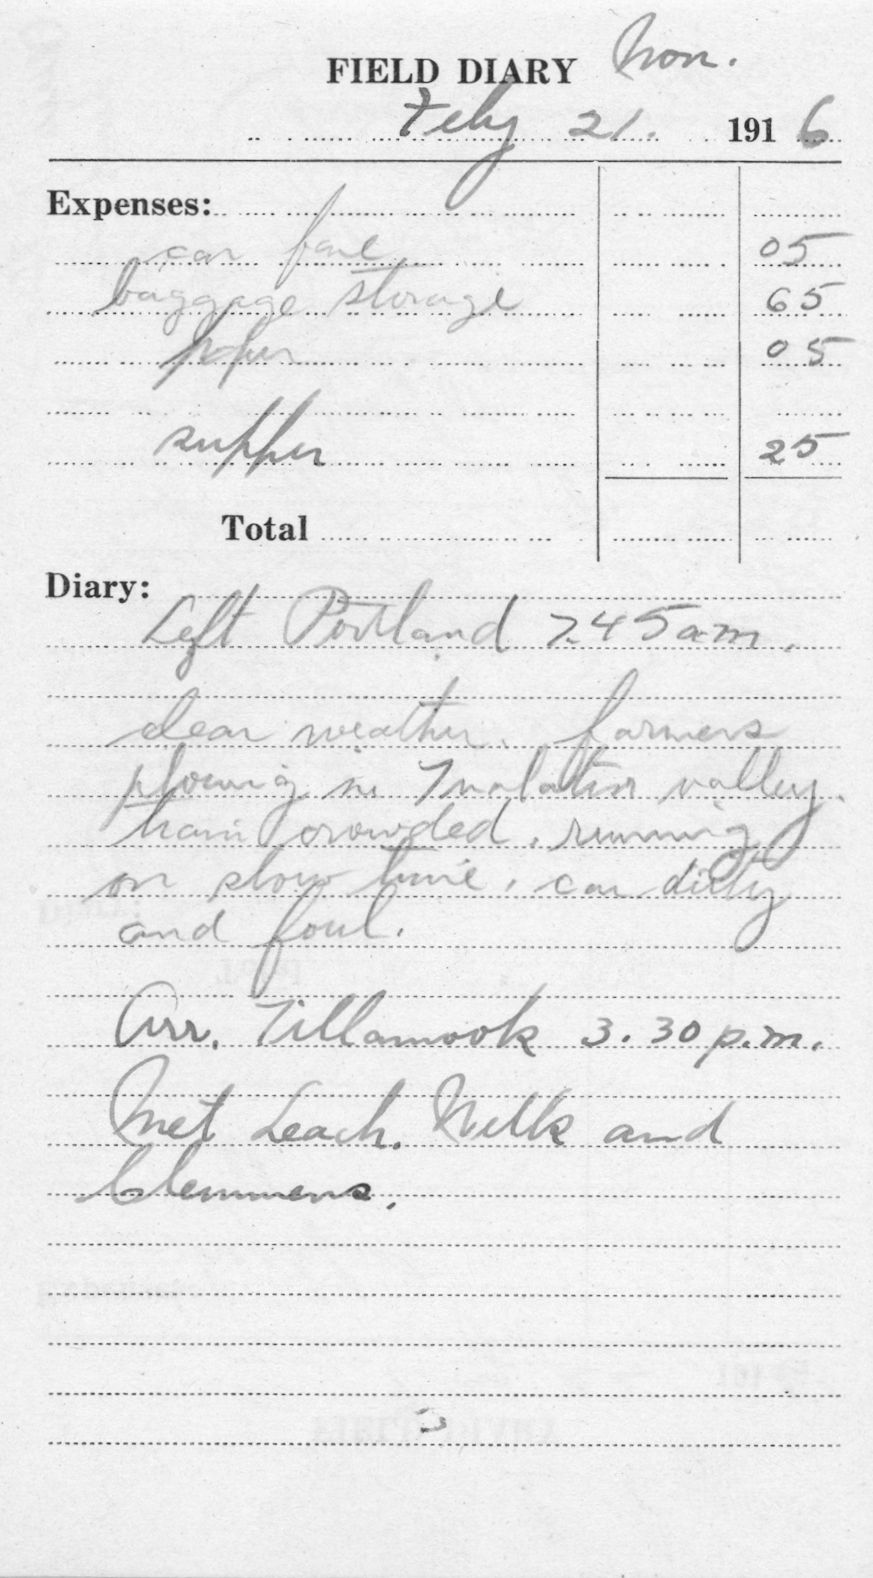 FIELD DIARY Mon.
Feby 21. 1916
Expenses:
car fare 05
baggage storage 65
paper 05
supper 25
Total
Diary:
Left Portland 7.45 a.m.
clear weather. farmers
plowing in Tualatin valley.
train crowded. running
on slow time. car dirty
and foul.
Arr. Tillamook 3.30 p.m.
Met Leach. and
Clemmens.